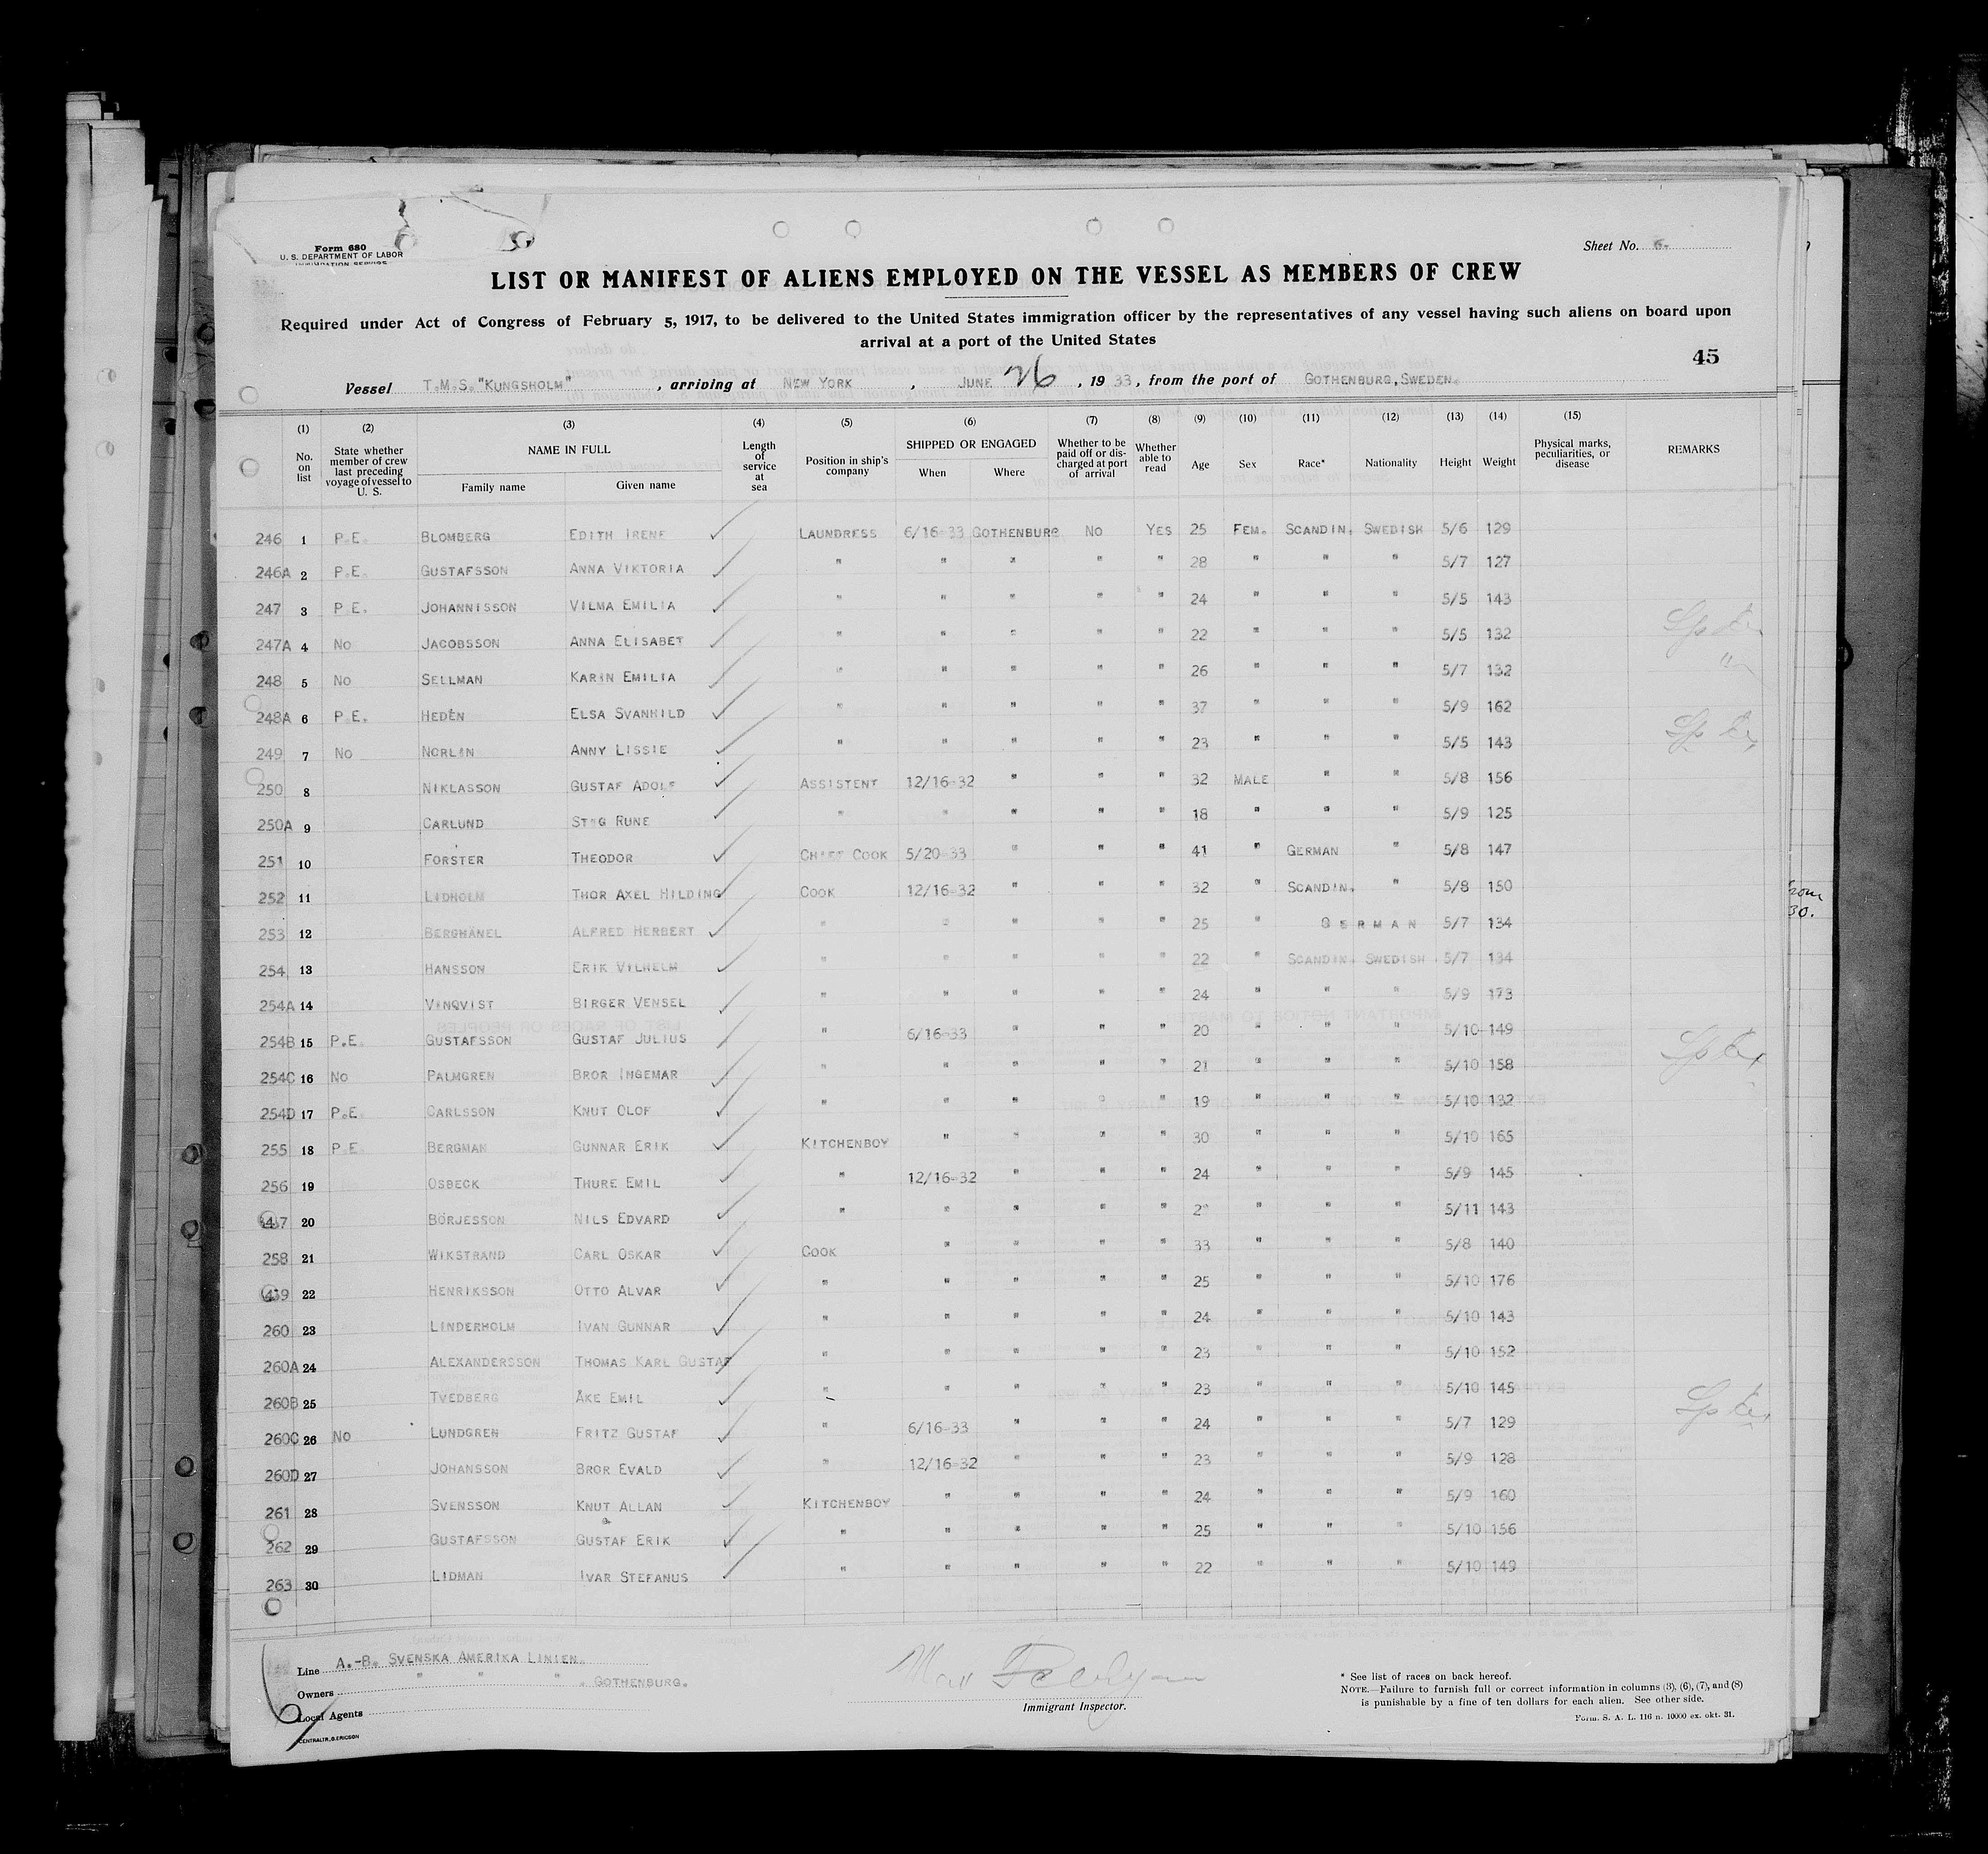 Form 680
U. S. DEPARTMENT OF LABOR
IMMIGRATION SERVICE
Sheet No. 6.
LIST OR MANIFEST OF ALIENS EMPLOYED ON THE VESSEL AS MEMBERS OF CREW
Required under Act of Congress of February 5, 1917, to be delivered to the United States immigration officer by the representatives of any vessel having such aliens on board upon
arrival at a port of the United States
45
Vessel T.M.S. "KUNGSHOLM" , arriving at NEW YORK , JUNE 26 , 19 33, from the port of GOTHENBURG, SWEDEN.
(1) (2) (3) (4) (5) (6) (7) (8) (9) (10) (11) (12) (13) (14) (15)
No. on list State whether member of crew last preceding voyage of vessel to U. S. NAME IN FULL Family name Given name Length of service at sea Position in ship's company SHIPPED OR ENGAGED When Where Whether to be paid off or discharged at port of arrival Whether able to read Age Sex Race* Nationality Height Weight Physical marks, peculiarities, or disease REMARKS
246 1 P.E. BLOMBERG EDITH IRENE LAUNDRESS 6/16-33 GOTHENBURG NO YES 25 FEM. SCANDIN. SWEDISH 5/6 129
246A 2 P.E. GUSTAFSSON ANNA VIKTORIA " " " " " 28 " " " 5/7 127
247 3 P.E. JOHANNISSON VILMA EMILIA " " " " " 24 " " " 5/5 143
247A 4 NO JACOBSSON ANNA ELISABET " " " " " 22 " " " 5/5 132
248 5 NO SELLMAN KARIN EMILIA " " " " " 26 " " " 5/7 132
248A 6 P.E. HEDÉN ELSA SVANHILD " " " " " 37 " " " 5/9 162
249 7 NO NORLIN ANNY LISSIE " " " " " 23 " " " 5/5 143
250 8 NIKLASSON GUSTAF ADOLF ASSISTENT 12/16-32 " " " 32 MALE " " 5/8 156
250A 9 CARLUND STIG RUNE " " " " " 18 " " " 5/9 125
251 10 FORSTER THEODOR CHIEF COOK 5/20-33 " " " 41 " GERMAN " 5/8 147
252 11 LIDHOLM THOR AXEL HILDING COOK 12/16-32 " " " 32 " SCANDIN. " 5/8 150
253 12 BERGHÄNEL ALFRED HERBERT " " " " " 25 " GERMAN 5/7 134
254 13 HANSSON ERIK VILHELM " " " " " 22 " SCANDIN. SWEDISH 5/7 134
254A 14 VINQVIST BIRGER VENSEL " " " " " 24 " " " 5/9 173
254B 15 P.E. GUSTAFSSON GUSTAF JULIUS " 6/16-33 " " " 20 " " " 5/10 149
254C 16 NO PALMGREN BROR INGEMAR " " " " " 21 " " " 5/10 158
254D 17 P.E. CARLSSON KNUT OLOF " " " " " 19 " " " 5/10 132
255 18 P.E BERGMAN GUNNAR ERIK KITCHENBOY " " " " 30 " " " 5/10 165
256 19 OSBECK THURE EMIL " 12/16-32 " " " 24 " " " 5/9 145
20 BÖRJESSON NILS EDVARD " " " " " " " " 5/11 143
258 21 WIKSTRAND CARL OSKAR COOK " " " " 33 " " " 5/8 140
22 HENRIKSSON OTTO ALVAR " " " " " 25 " " " 5/10 176
260 23 LINDERHOLM IVAN GUNNAR " " " " " 24 " " " 5/10 143
260A 24 ALEXANDERSSON THOMAS KARL GUSTAF " " " " " 23 " " " 5/10 152
260B 25 TVEDBERG ÅKE EMIL " " " " " 23 " " " 5/10 145
260C 26 NO LUNDGREN FRITZ GUSTAF " 6/16-33 " " " 24 " " " 5/7 129
260D 27 JOHANSSON BROR EVALD " 12/16-32 " " " 23 " " " 5/9 128
261 28 SVENSSON KNUT ALLAN KITCHENBOY " " " " 24 " " " 5/9 160
262 29 GUSTAFSSON GUSTAF ERIK " " " " " 25 " " " 5/10 156
263 30 LIDMAN IVAR STEFANUS " " " " " 22 " " " 5/10 149
Line A.-B. SVENSKA AMERIKA LINIEN.
Owners " " " , GOTHENBURG.
Local Agents
CENTRALTR., G. ERICSON
Immigrant Inspector.
* See list of races on back hereof.
NOTE.—Failure to furnish full or correct information in columns (3), (6), (7), and (8)
is punishable by a fine of ten dollars for each alien. See other side.
Form. S. A. L. 116 n. 10000 ex. okt. 31.